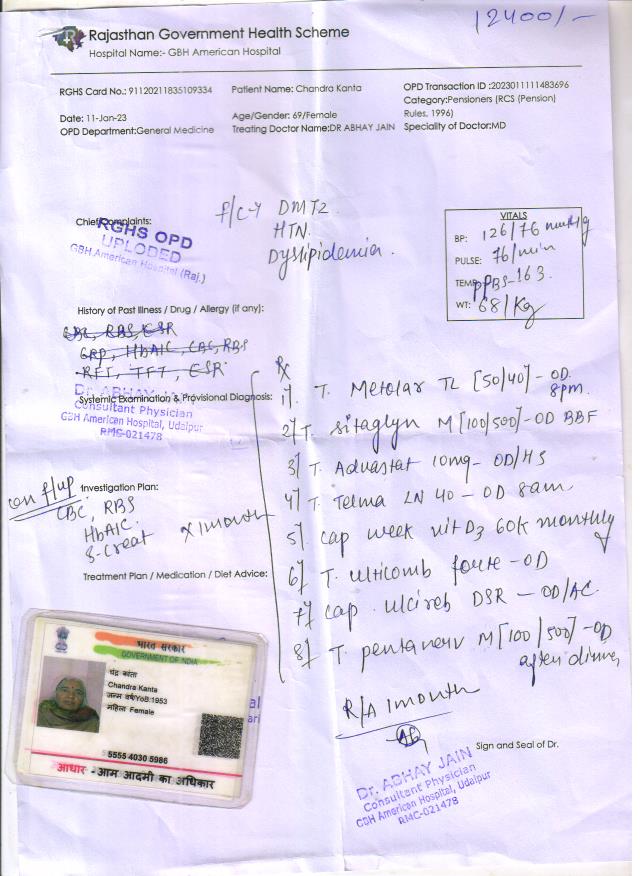 12400/-
Rajasthan Government Health Scheme
Hospital Name:- GBH American Hospital
RGHS Card No.: 91120211835109334
Patient Name: Chandra Kanta
OPD Transaction ID :2023011111483696
Category:Pensioners (RCS (Pension)
Rules, 1996)
Date: 11-Jan-23
Age/Gender: 69/Female
OPD Department:General Medicine
Treating Doctor Name:DR ABHAY JAIN
Speciality of Doctor:MD
Chief Complaints:
RGHS OPD
UPLODED
GBH American Hospital (Raj.)
f/c-y DMT2
HTN.
Dyslipidemia.
VITALS
BP: 126/76 mmHg
PULSE: 76/min
TEMP: PPBS-163
WT: 68/Kg
History of Past Illness / Drug / Allergy (if any):
CBC, RBS, ESR
CRP, HbA1C, CBC, RBS
RFT, TFT, ESR
Systemic Examination & Provisional Diagnosis:
Dr. ABHAY JAIN
Consultant Physician
GBH American Hospital, Udaipur
RMC-021478
Rx
1) T. Metolar TL [50/40] - OD 8pm.
2) T. sitaglyn M [100/500] - OD BBF
3) T. Advastat 10mg - OD/HS
4) T. Telma LN 40 - OD 8am
5) cap week vit D3 60K monthly
6) T. ulticomb forte - OD
7) cap. ulcireb DSR - OD/AC
8) T. pentanerv M [100/500] - OD
after dinner
on f/up
Investigation Plan:
CBC, RBS
HbA1C
S-Creat
x 1month
Treatment Plan / Medication / Diet Advice:
R/A 1month
Sign and Seal of Dr.
Dr. ABHAY JAIN
Consultant Physician
GBH American Hospital, Udaipur
RMC-021478
भारत सरकार
GOVERNMENT OF INDIA
चंद्र कांता
Chandra Kanta
जन्म वर्ष/YoB:1953
महिला Female
5555 4030 5986
आधार - आम आदमी का अधिकार